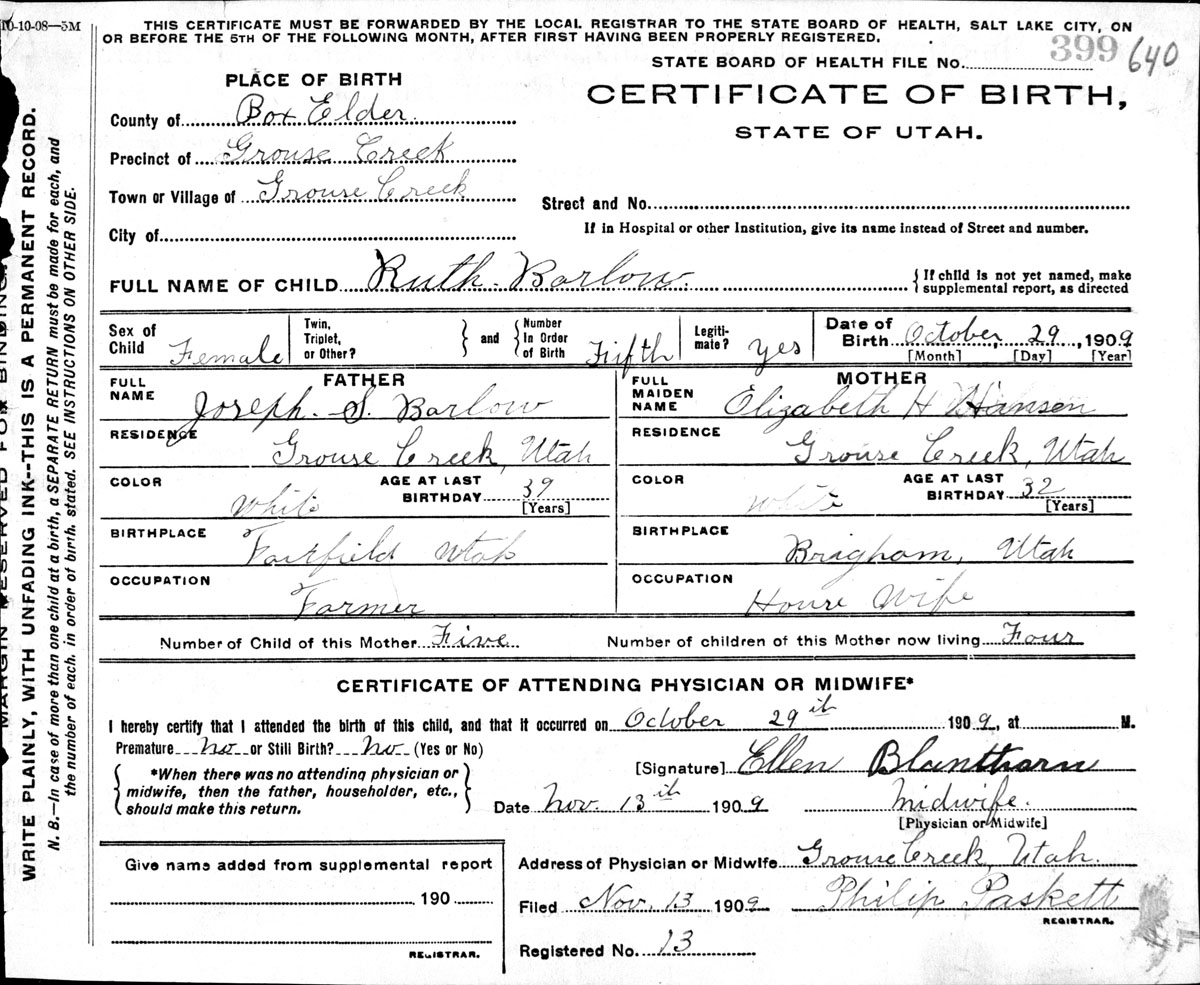 10-10-08—5M
THIS CERTIFICATE MUST BE FORWARDED BY THE LOCAL REGISTRAR TO THE STATE BOARD OF HEALTH, SALT LAKE CITY, ON
OR BEFORE THE 5TH OF THE FOLLOWING MONTH, AFTER FIRST HAVING BEEN PROPERLY REGISTERED.
399 640
STATE BOARD OF HEALTH FILE No.
PLACE OF BIRTH
CERTIFICATE OF BIRTH,
STATE OF UTAH.
County of Box Elder
Precinct of Grouse Creek
Town or Village of Grouse Creek
Street and No.
City of
If in Hospital or other Institution, give its name instead of Street and number.
FULL NAME OF CHILD Ruth Barlow.
{ If child is not yet named, make
supplemental report, as directed
Sex of Child Female
Twin, Triplet, or Other? } and { Number In Order of Birth Fifth
Legiti-mate? Yes
Date of Birth October 29, 1909
[Month] [Day] [Year]
FATHER
FULL NAME Joseph. S. Barlow
RESIDENCE Grouse Creek, Utah
COLOR White AGE AT LAST BIRTHDAY 39
[Years]
BIRTHPLACE Fairfield Utah
OCCUPATION Farmer
MOTHER
FULL MAIDEN NAME Elizabeth H Hansen
RESIDENCE Grouse Creek, Utah
COLOR White AGE AT LAST BIRTHDAY 32
[Years]
BIRTHPLACE Brigham, Utah
OCCUPATION House Wife
Number of Child of this Mother Five Number of children of this Mother now living Four
CERTIFICATE OF ATTENDING PHYSICIAN OR MIDWIFE*
I hereby certify that I attended the birth of this child, and that it occurred on October 29th 1909, at M.
Premature No or Still Birth? No (Yes or No)
{ *When there was no attending physician or
midwife, then the father, householder, etc.,
should make this return. }
[Signature] Ellen Blanthorn
Date Nov. 13th 1909 Midwife.
[Physician or Midwife]
Give name added from supplemental report
190
REGISTRAR.
Address of Physician or Midwife Grouse Creek, Utah.
Filed Nov. 13 1909 Philip Paskett
REGISTRAR.
Registered No. 13
MARGIN RESERVED FOR BINDING
WRITE PLAINLY, WITH UNFADING INK--THIS IS A PERMANENT RECORD.
N. B.—In case of more than one child at a birth, a SEPARATE RETURN must be made for each, and
the number of each, in order of birth, stated. SEE INSTRUCTIONS ON OTHER SIDE.